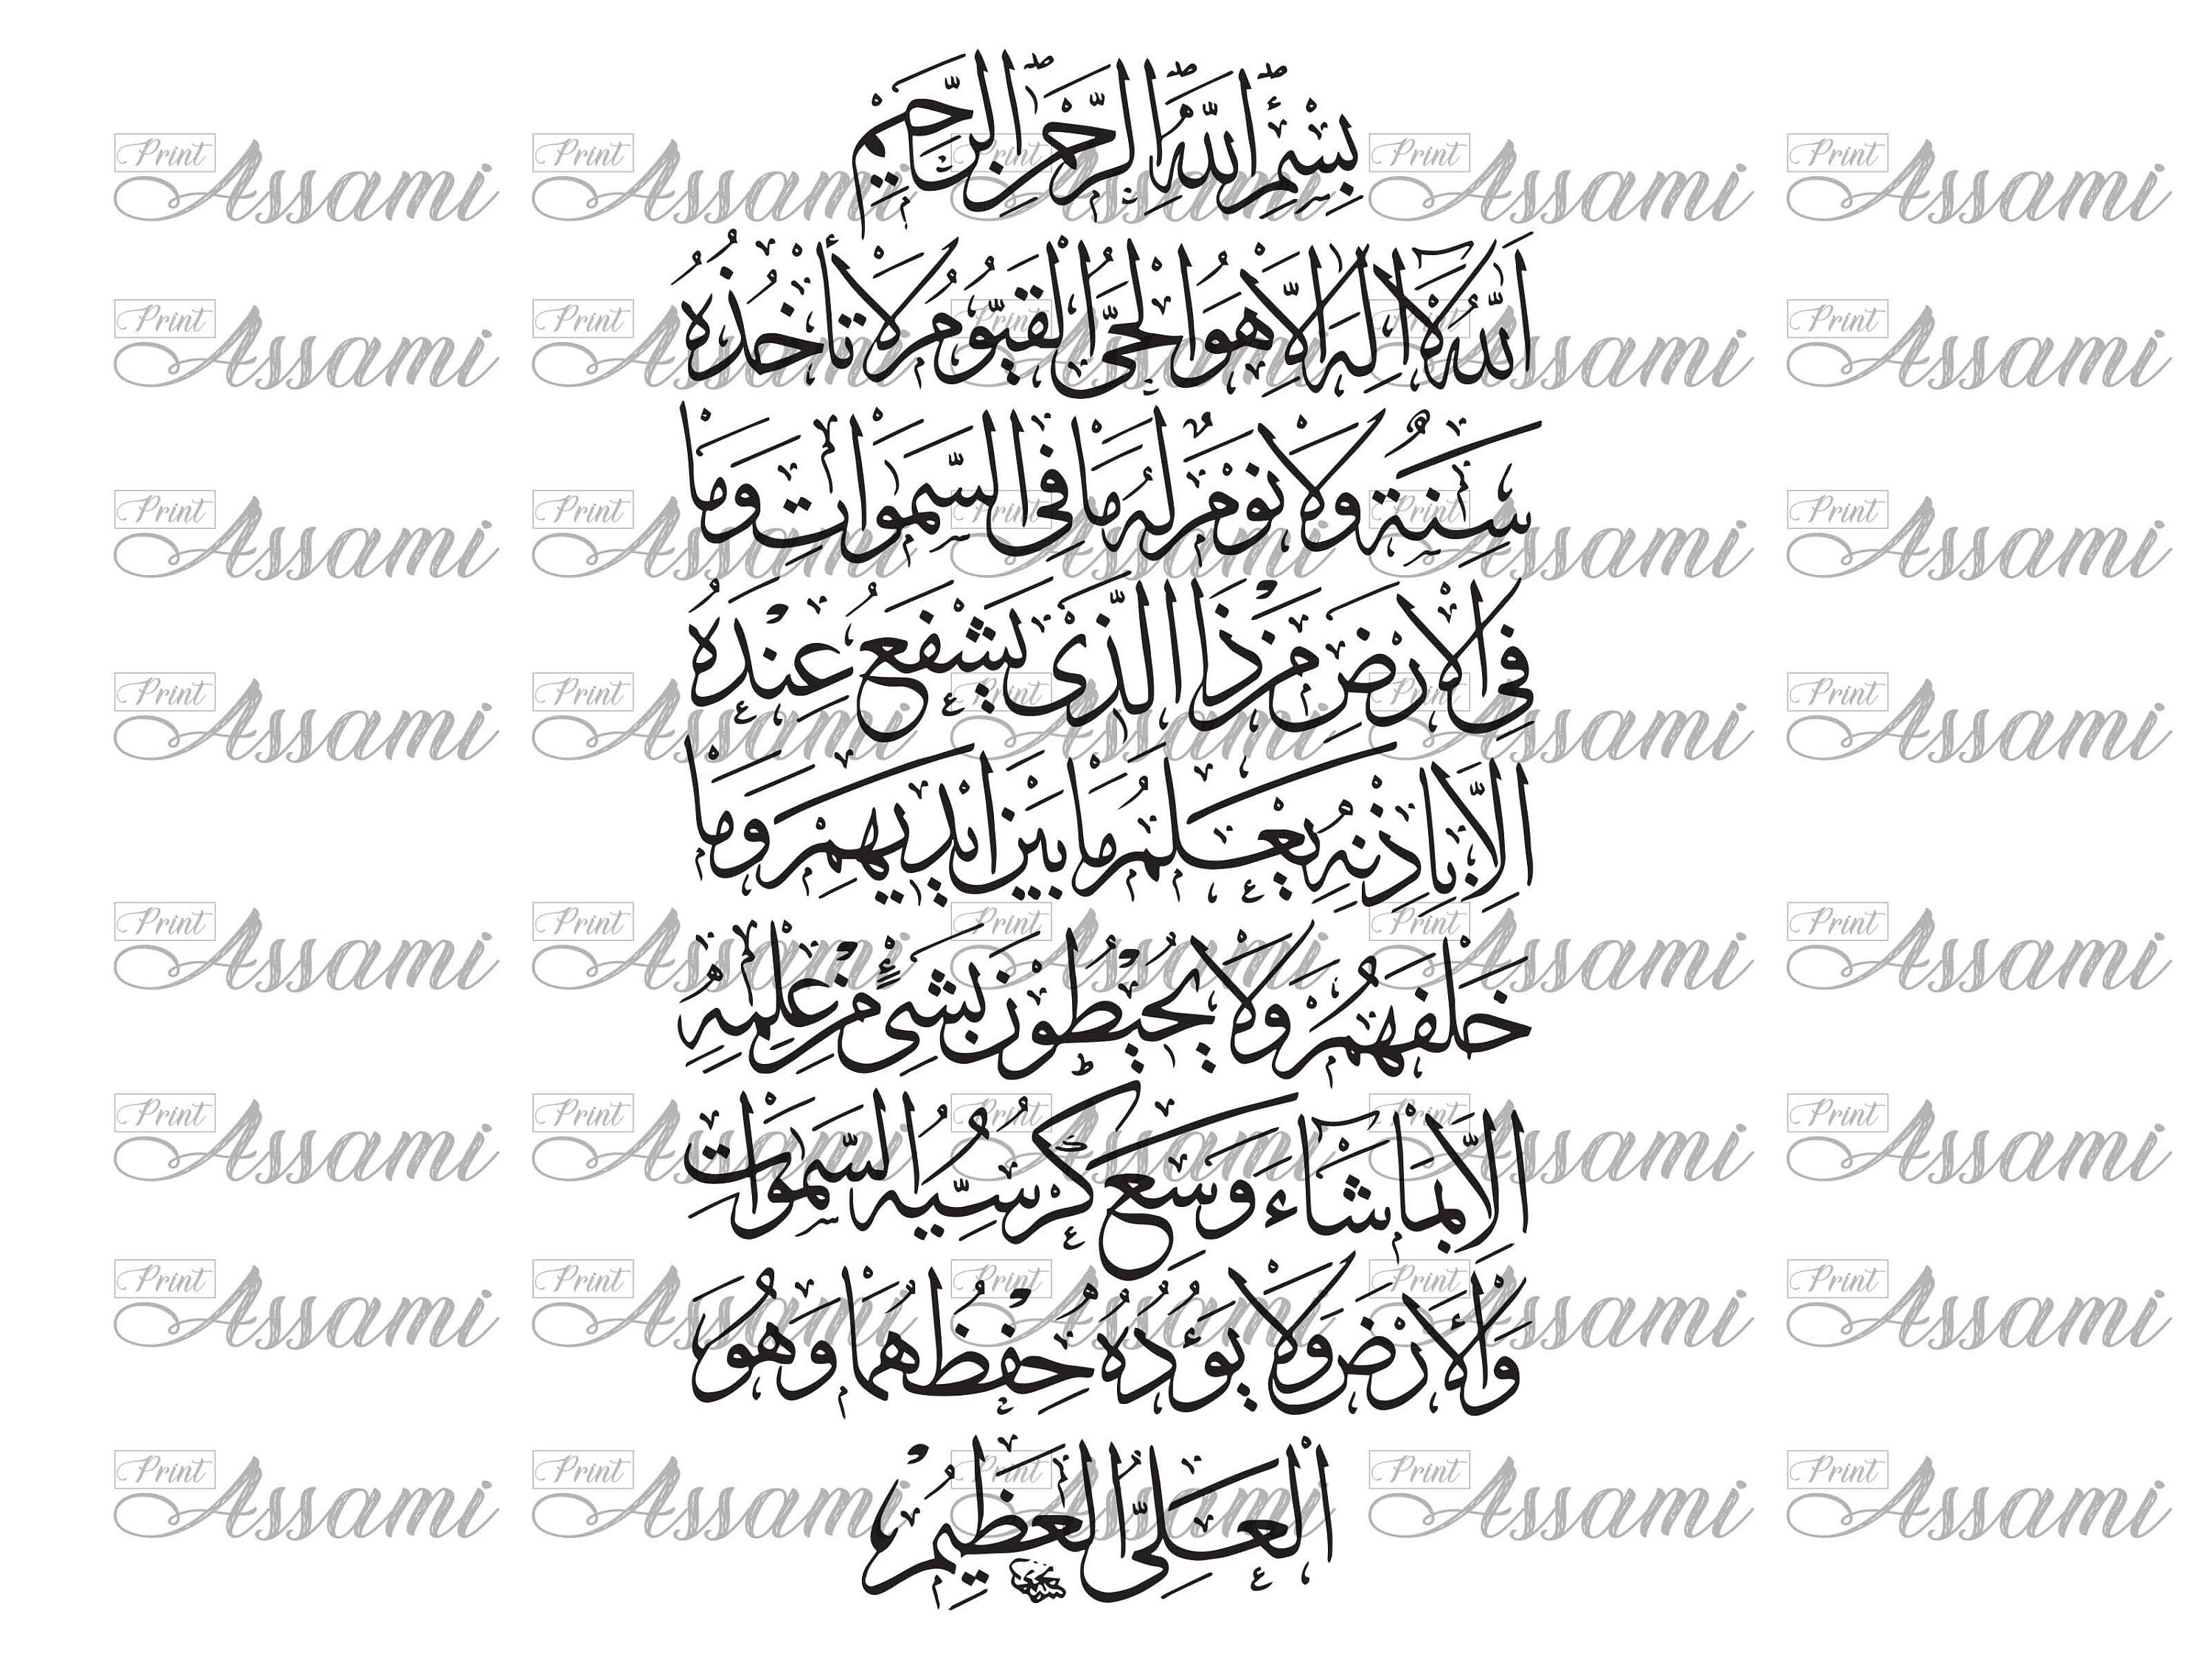 بِسْمِ اللَّهِ الرَّحْمَٰنِ الرَّحِيمِ
اَللَّهُ لَا إِلَٰهَ إِلَّا هُوَ الْحَيُّ الْقَيُّومُ لَا تَأْخُذُهُ
سِنَةٌ وَلَا نَوْمٌ لَهُ مَا فِي السَّمٰوَاتِ وَمَا
فِي الْأَرْضِ مَنْ ذَا الَّذِي يَشْفَعُ عِنْدَهُ
إِلَّا بِإِذْنِهِ يَعْلَمُ مَا بَيْنَ أَيْدِيهِمْ وَمَا
خَلْفَهُمْ وَلَا يُحِيطُونَ بِشَيْءٍ مِنْ عِلْمِهِ
إِلَّا بِمَا شَاءَ وَسِعَ كُرْسِيُّهُ السَّمٰوَاتِ
وَالْأَرْضَ وَلَا يَؤُدُهُ حِفْظُهُمَا وَهُوَ
الْعَلِيُّ الْعَظِيمُ
Print Assami Print Assami Print Assami Print Assami Print Assami
Print Assami Print Assami Print Assami Print Assami Print Assami
Print Assami Print Assami Print Assami Print Assami Print Assami
Print Assami Print Assami Print Assami Print Assami Print Assami
Print Assami Print Assami Print Assami Print Assami Print Assami
Print Assami Print Assami Print Assami Print Assami Print Assami
Print Assami Print Assami Print Assami Print Assami Print Assami
Print Assami Print Assami Print Assami Print Assami Print Assami